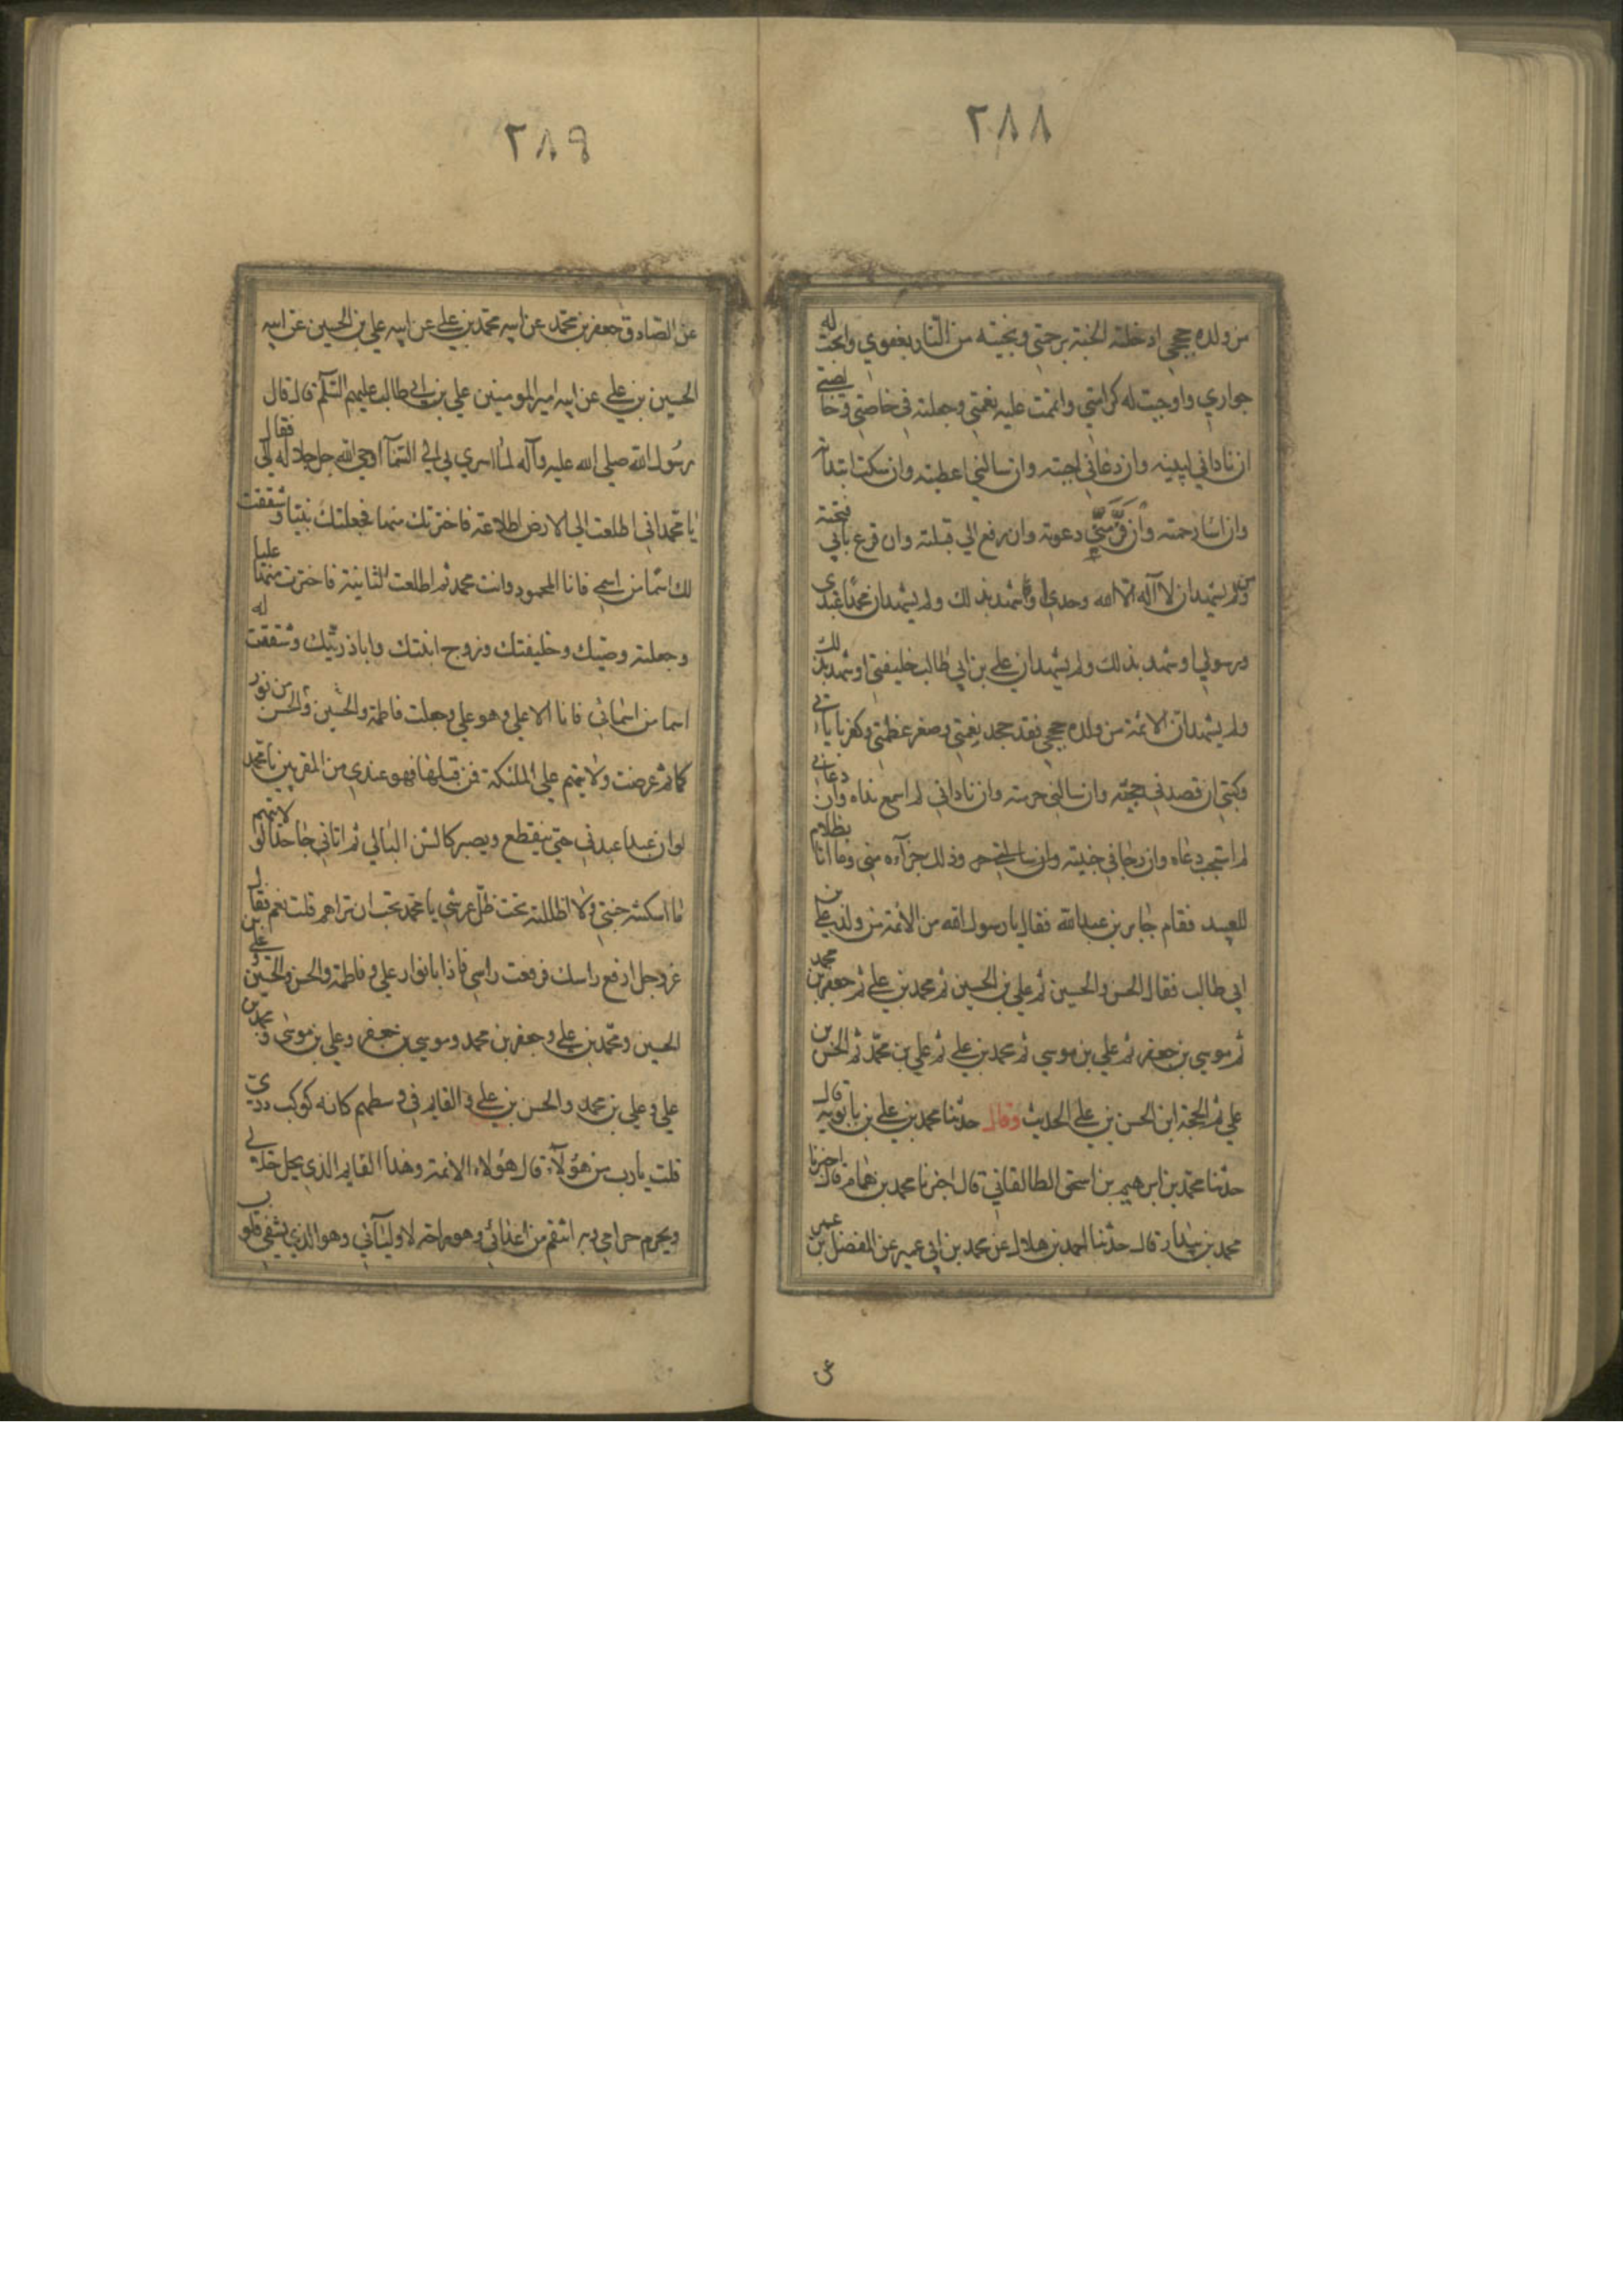 ٢٨٨
من ولده حججي ادخلته الجنة برحمتي ونجيته من النار بعفوي وابحت له
جواري واوجبت له كرامتي واتممت عليه نعمتي وجعلته في خاصتي وخالصتي
ان ناداني لبيته وان دعاني اجبته وان سالني اعطيته وان سكت ابتداته
وان اسا رحمته وان فر مني دعوته وان رفع الي قبلته وان قرع بابي فتحته
ومن لم يشهد ان لا اله الا الله وحدي او شهد بذلك ولم يشهد ان محمدا عبدي
ورسولي او شهد بذلك ولم يشهد ان علي بن ابي طالب خليفتي او شهد بذلك
ولم يشهد ان الائمة من ولده حججي فقد جحد نعمتي وصغر عظمتي وكفر باياتي
وكتبي ان قصدني حجبته وان سالني حرمته وان ناداني لم اسمع نداه وان دعاني
لم استجب دعاه وان رجاني خيبته وذلك جزآءه مني وما انا بظلام
للعبيد فقام جابر بن عبدالله فقال يا رسول الله من الائمة من ولد علي بن
ابي طالب فقال الحسن والحسين ثم علي بن الحسين ثم محمد بن علي ثم جعفر بن محمد
ثم موسي بن جعفر ثم علي بن موسي ثم محمد بن علي ثم علي بن محمد ثم الحسن بن
علي ثم الحجة ابن الحسن بن علي الحديث وقال حدثنا محمد بن علي بن بابويه قال
حدثنا محمد بن ابرهيم بن اسحق الطالقاني قال اخبرنا محمد بن همام قال اخبرنا
محمد بن بندار قال حدثنا احمد بن هلال عن محمد بن ابي عمير عن المفضل بن عمر
عن
٢٨٩
عن الصادق جعفر بن محمد عن ابيه محمد بن علي عن ابيه علي بن الحسين عن ابيه
الحسين بن علي عن ابيه امير المومنين علي بن ابي طالب عليهم السلم قال قال
رسول الله صلي الله عليه وآله لما اسري بي الي السمآ اوحي الله جل جلاله الي فقال
يا محمد اني اطلعت الي الارض اطلاعة فاخترتك منها فجعلتك نبيا وشققت
لك اسما من اسمي فانا المحمود وانت محمد ثم اطلعت الثانية فاخترت منها عليا
وجعلته وصيك وخليفتك وزوج ابنتك وابا ذريتك وشققت له
اسما من اسمائي فانا الاعلي وهو علي وجعلت فاطمة والحسين والحسن من نور
كما ثم عرضت ولايتهم علي الملئكة فمن قبلها فهو عندي من المقربين يا محمد
لو ان عبدا عبدني حتي ينقطع ويصير كالشن البالي ثم اتاني جاحدا لولايتهم
ما اسكنته جنتي ولا اظللته تحت ظل عرشي يا محمد تحب ان تراهم قلت نعم فقال
عز وجل ارفع راسك فرفعت راسي فاذا بانوار علي وفاطمة والحسن والحسين وعلي بن
الحسين ومحمد بن علي وجعفر بن محمد وموسي بن جعفر وعلي بن موسي ومحمد بن
علي وعلي بن محمد والحسن بن علي والقايم في وسطهم كانه كوكب دري
قلت يا رب من هولآء قال هولاء الائمة وهذا القايم الذي يحل حلالي
ويحرم حرامي وبه انتقم من اعدائي وهو راحة لاوليآئي وهو الذي يشفي قلوب